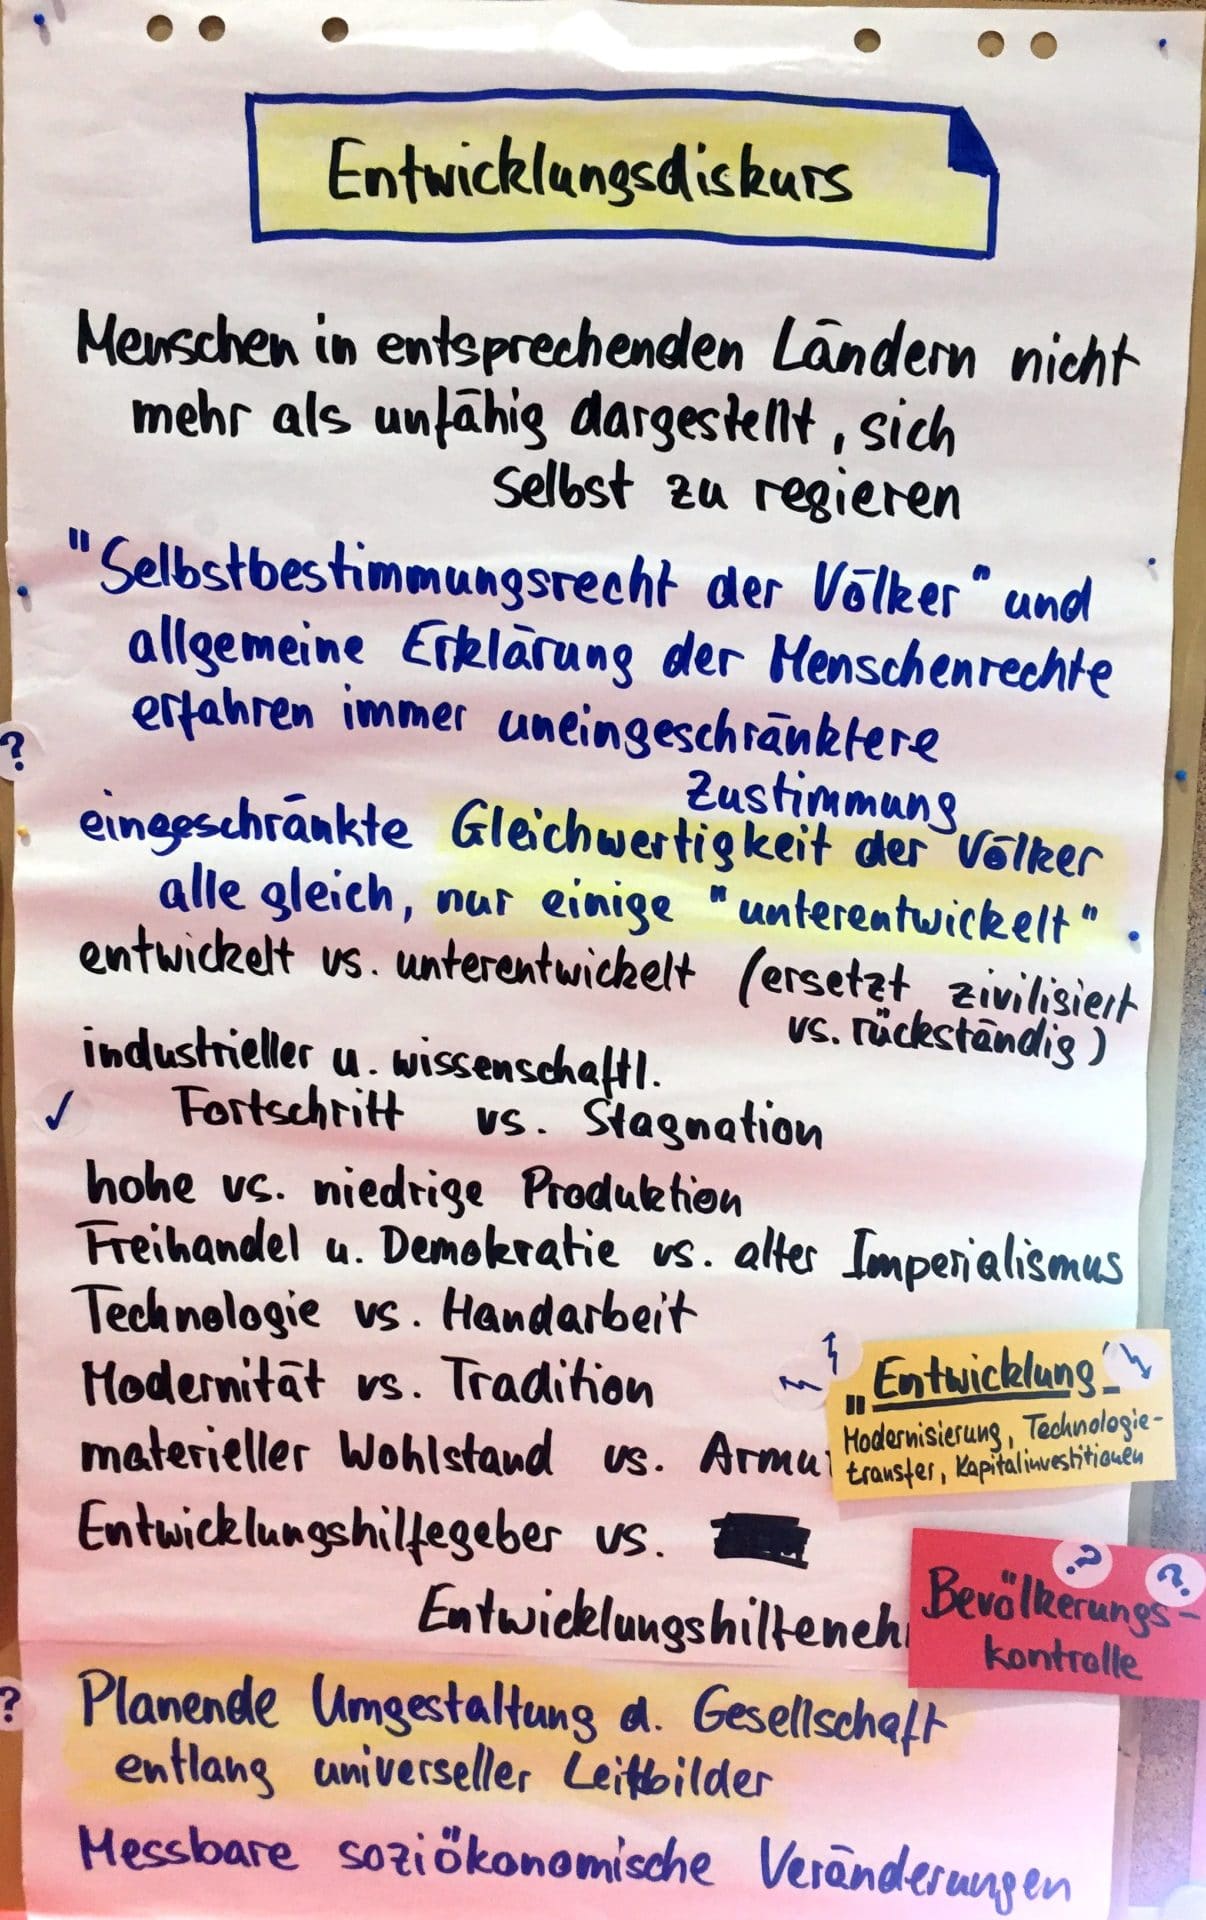 Entwicklungsdiskurs
Menschen in entsprechenden Ländern nicht
mehr als unfähig dargestellt, sich
selbst zu regieren
"Selbstbestimmungsrecht der Völker" und
allgemeine Erklärung der Menschenrechte
erfahren immer uneingeschränktere
Zustimmung
?
eingeschränkte Gleichwertigkeit der Völker
alle gleich, nur einige "unterentwickelt"
entwickelt vs. unterentwickelt (ersetzt zivilisiert
vs. rückständig)
industrieller u. wissenschaftl.
✓ Fortschritt vs. Stagnation
hohe vs. niedrige Produktion
Freihandel u. Demokratie vs. alter Imperialismus
Technologie vs. Handarbeit
Modernität vs. Tradition
materieller Wohlstand vs. Armu
"Entwicklung"
Modernisierung, Technologie-
transfer, Kapitalinvestitionen
Entwicklungshilfegeber vs.
Entwicklungshilfeneh
? ?
Bevölkerungs-
kontrolle
?
Planende Umgestaltung d. Gesellschaft
entlang universeller Leitbilder
Messbare soziökonomische Veränderungen